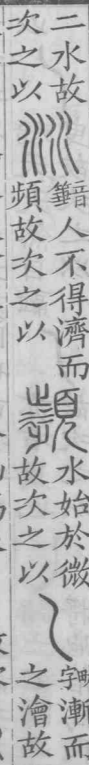 二水故
次之以
沝
音箠人不得濟而
頻故次之以
瀕
水始於微
故次之以
𡿨
畎字漸而
之澮故